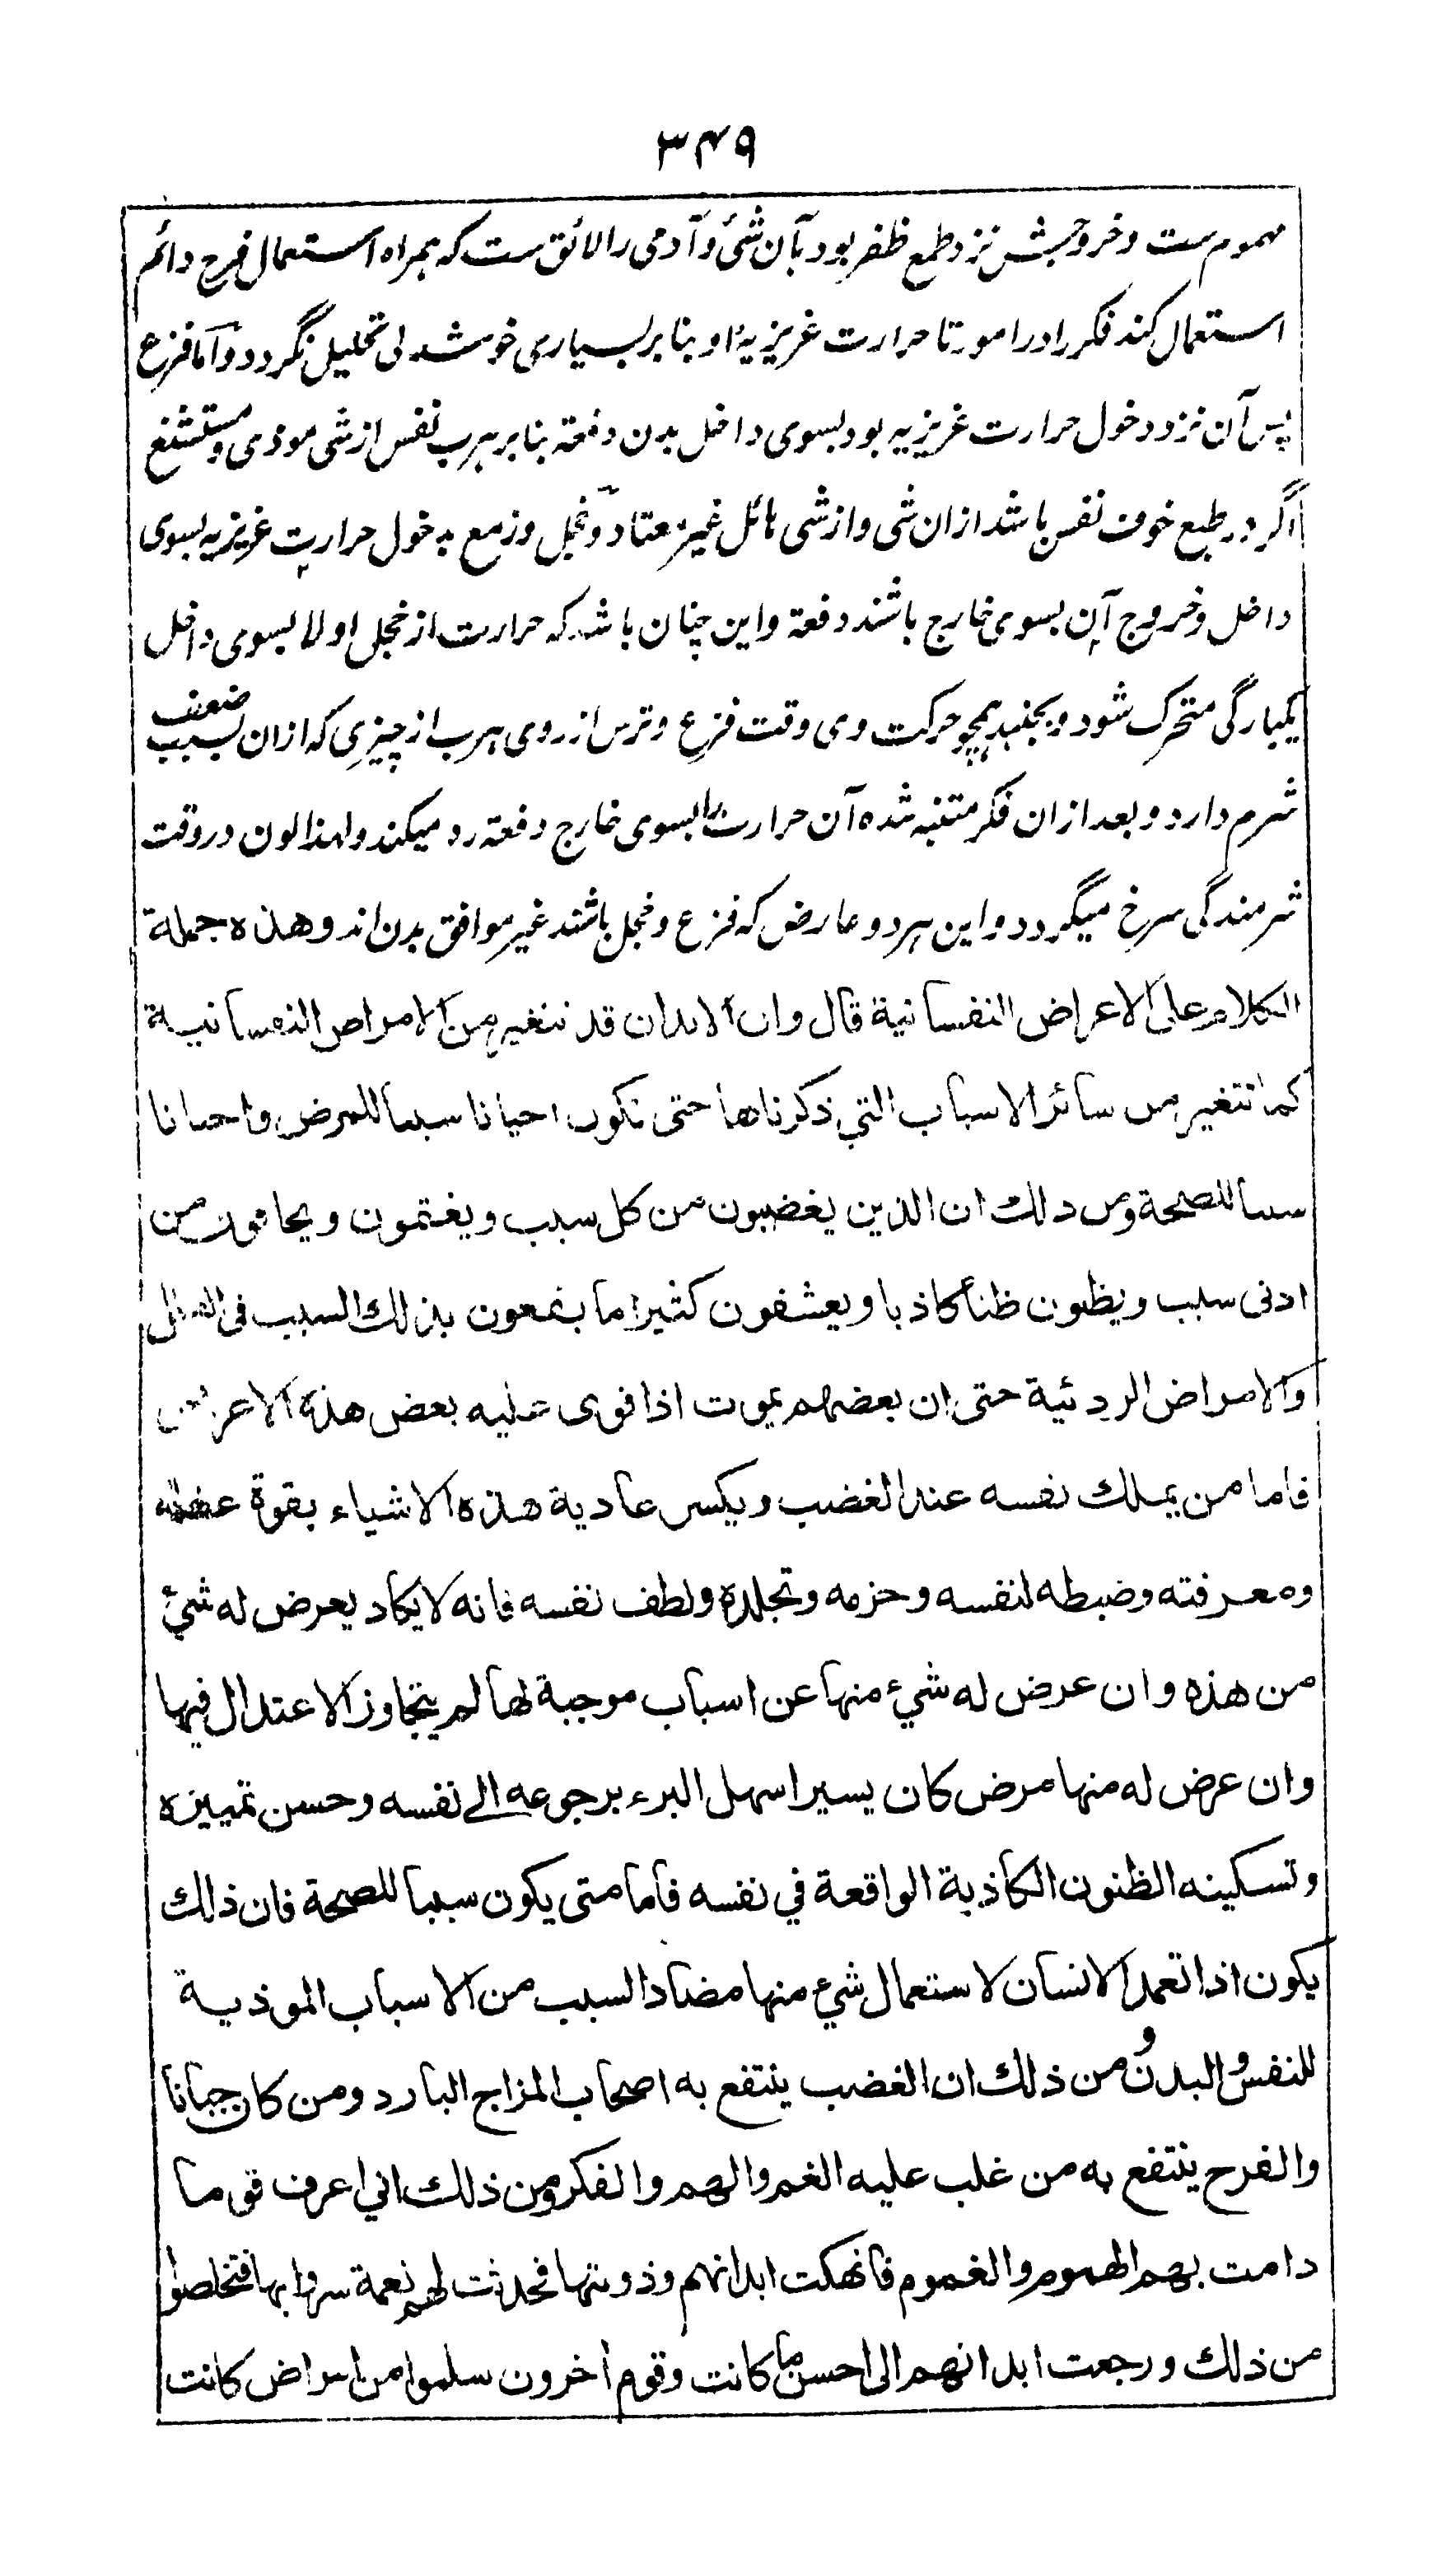 ۳۴۹
مهموم ست و خروجش نزد طمع ظفر بود بآن شئ و آدمی را لائق ست که همراه استعمال فرح دائم
استعمال کند فکر را در امور تا حرارت غریزیۀ او بنا بر بسیاری خوشدلی تحلیل نگردد و اما فزع
پس آن نزد دخول حرارت غریزیه بود بسوی داخل بدن دفعة بنا بر هرب نفس از شی موذی و مستشنع
اگر در طبع خوف نفس باشد ازان شی و از شی هائل غیر معتاد و خجل و زمع بدخول حرارت غریزیه بسوی
داخل و خروج آن بسوی خارج باشند دفعة و این چنان باشد که حرارت از خجل اولا بسوی داخل
یکبارگی متحرک شود و بجنبد همچو حرکت وی وقت فزع و ترس از روی هرب از چیزی که ازان بسبب ضعف
شرم دارد و بعد ازان فکر متنبه شده آن حرارت را بسوی خارج دفعة رد میکند و لهذا لون در وقت
شرمندگی سرخ میگردد و این هر دو عارض که فزع و خجل باشند غیر موافق بدن اند وهذه جملة
الكلام على الاعراض النفسانية قال وان الابدان قد تتغير من الامراض النفسانية
كما تتغير من سائر الاسباب التي ذكرناها حتى تكون احيانا سببا للمرض واحيانا
سببا للصحة ومن ذلك ان الذين يغضبون من كل سبب ويغتمون ويخافون من
ادنى سبب ويظنون ظنا كاذبا ويعشقون كثيرا ما يقعون بذلك السبب في
والامراض الردئية حتى ان بعضهم يموت اذا قوى عليه بعض هذه الاعراض
فاما من يملك نفسه عند الغضب ويكسر عادية هذه الاشياء بقوة عقله
ومعرفته وضبطه لنفسه وحزمه وتجلده ولطف نفسه فانه لا يكاد يعرض له شئ
من هذه وان عرض له شيء منها عن اسباب موجبة لها لم يتجاوز الاعتدال فيها
وان عرض له منها مرض كان يسيرا سهل البرء برجوعه الى نفسه وحسن تمييزه
وتسكينه الظنون الكاذبة الواقعة في نفسه فاما متى يكون سببا للصحة فان ذلك
يكون اذا تعمد الانسان لاستعمال شيء منها مضاد السبب من الاسباب الموذية
للنفس والبدن ومن ذلك ان الغضب ينتفع به اصحاب المزاج البارد ومن كان جبانا
والفرح ينتفع به من غلب عليه الغم والهم والفكر ومن ذلك اني اعرف قوما
دامت بهم الهموم والغموم فانهكت ابدانهم وذوبتها فحدثت لهم نعمة سروا بها فتخلصوا
من ذلك ورجعت ابدانهم الى احسن ما كانت وقوم اخرون سلموا من امراض كانت